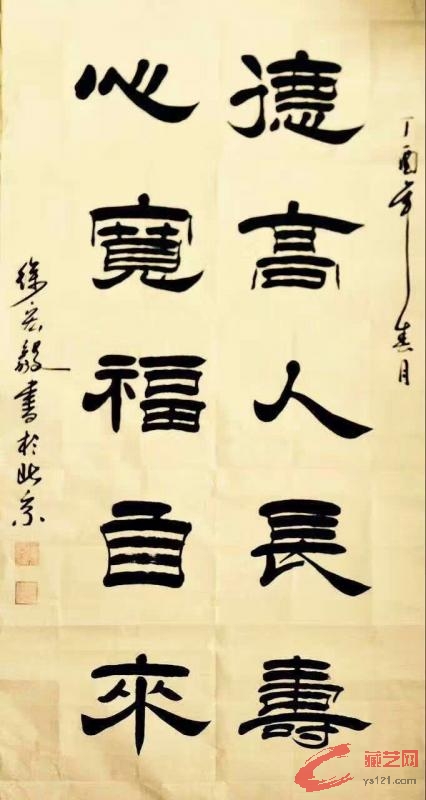 丁酉年春月
德高人長壽
心寬福自來
徐宏毅書於北京
藏艺网
ys121.com